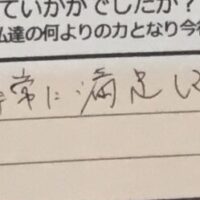 ていかがでしたか？
私達の何よりの力となり今後
非常に満足し